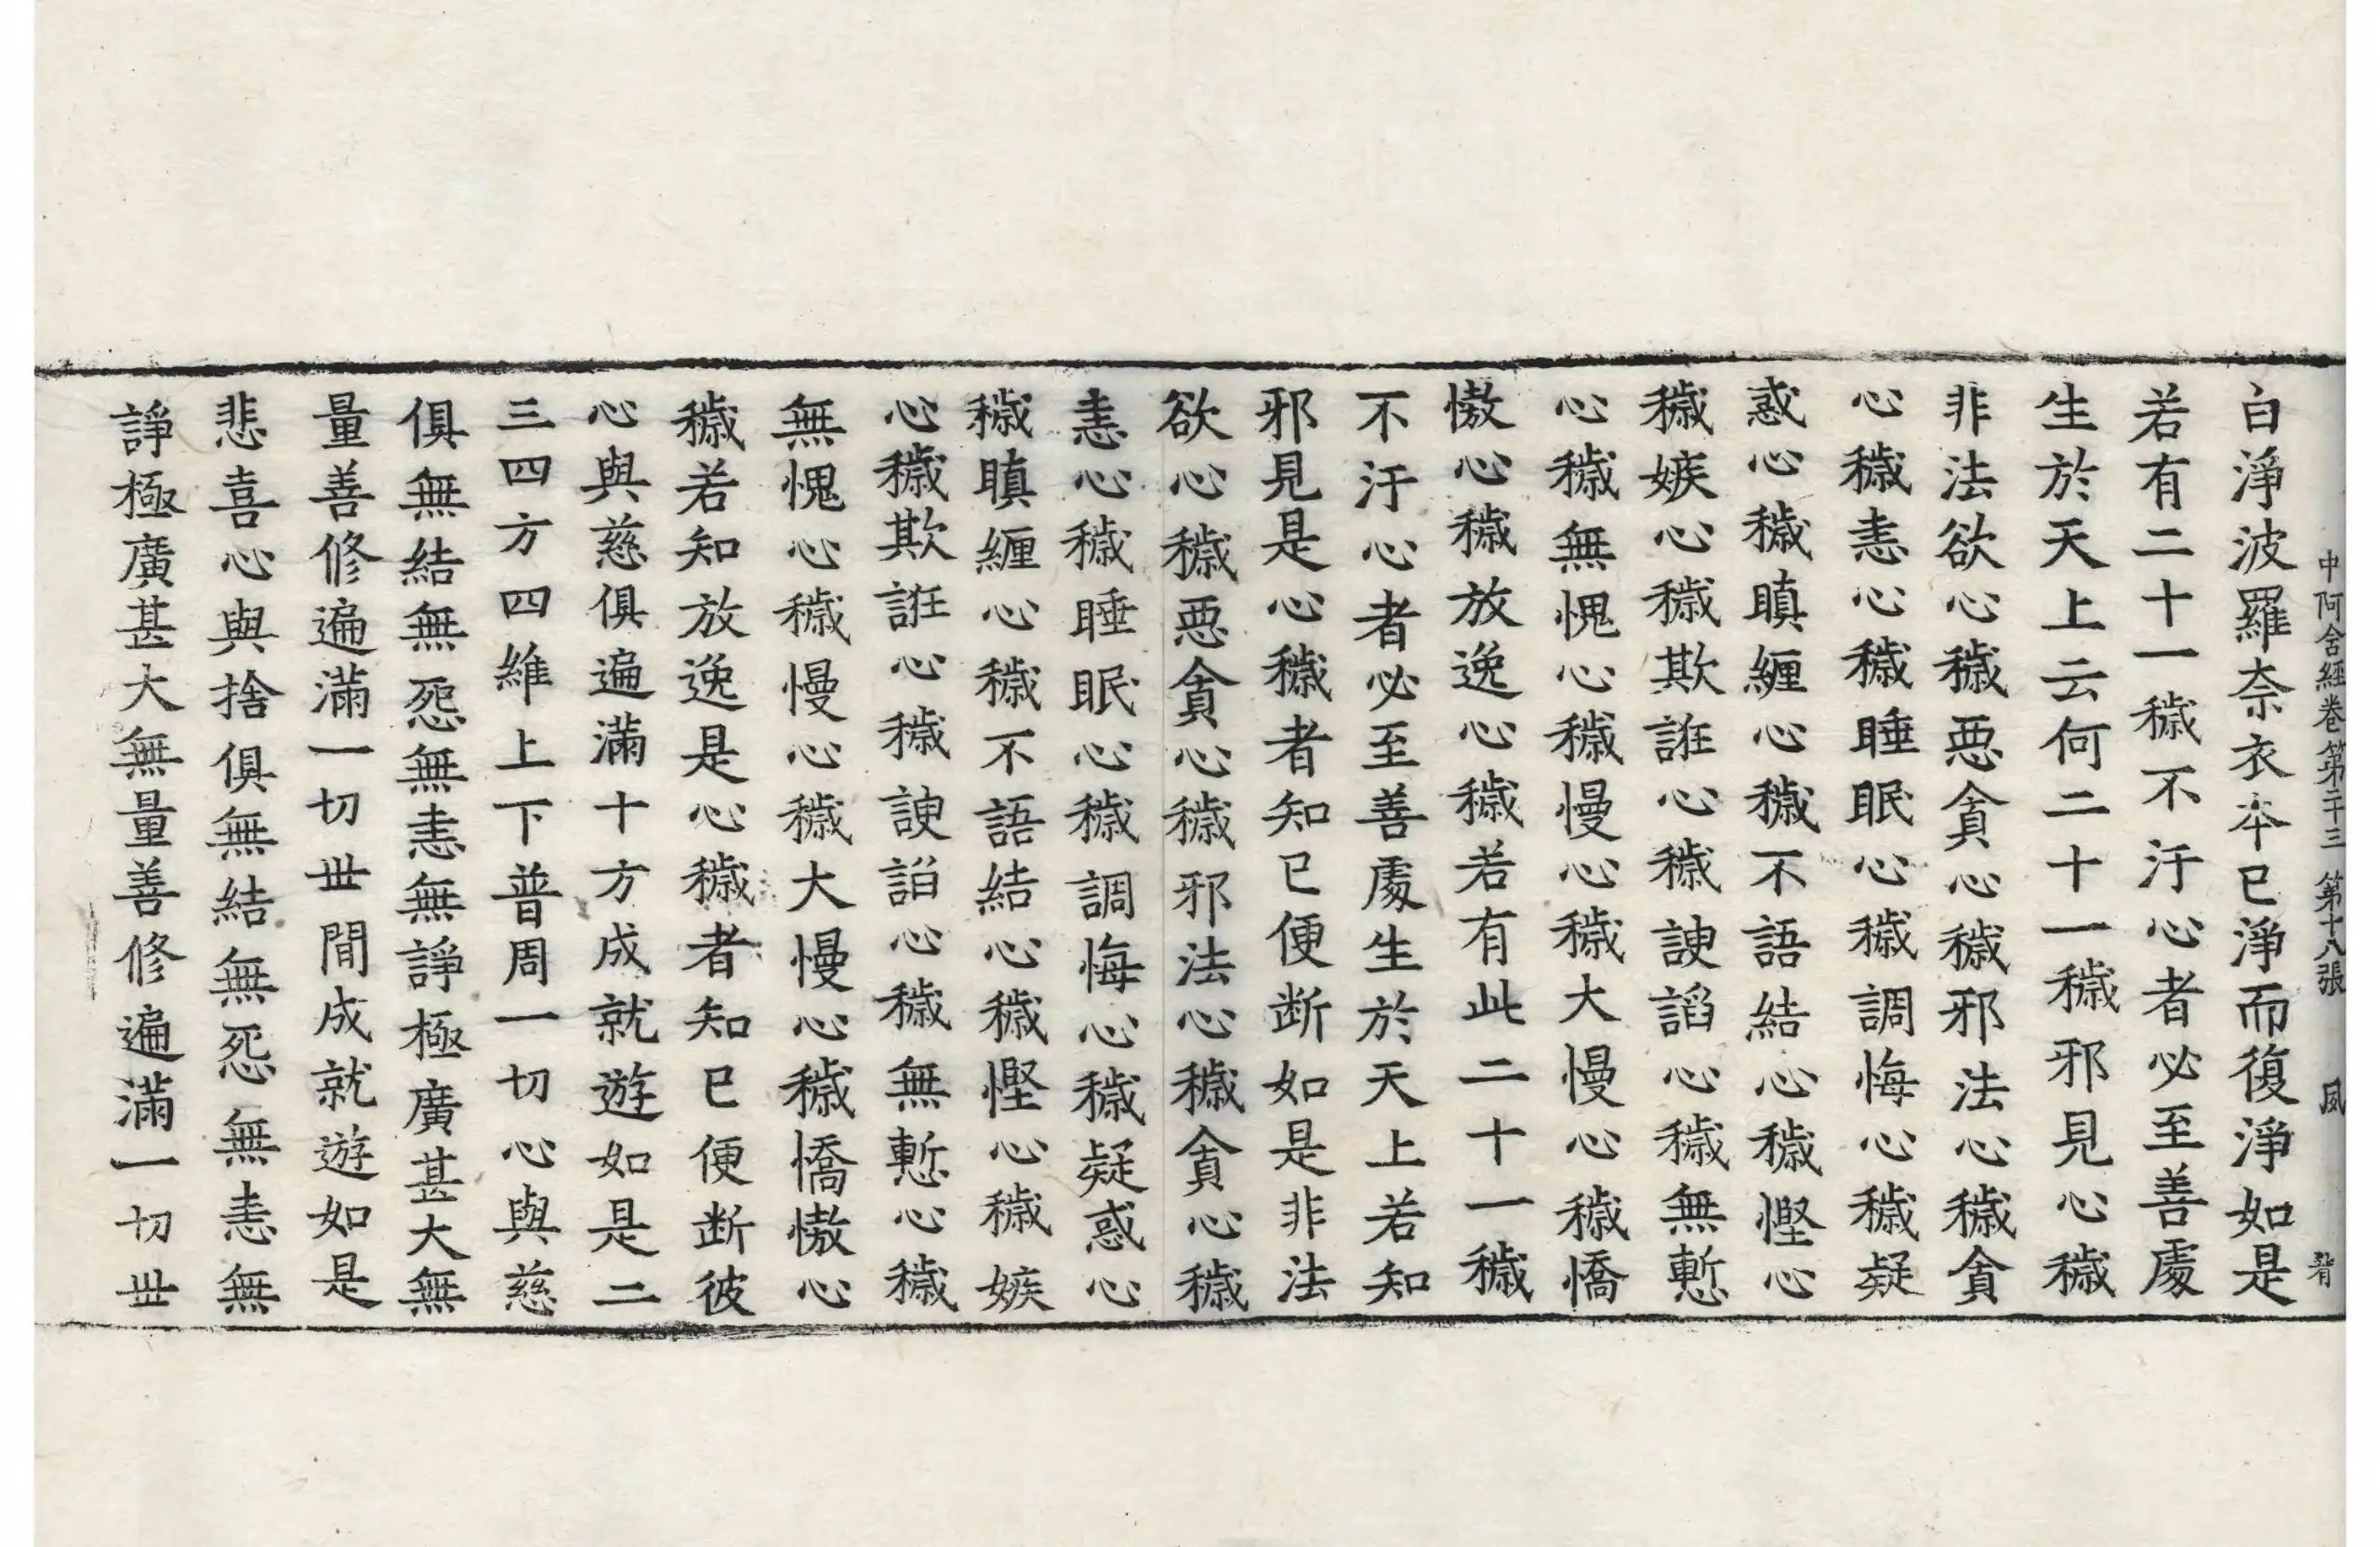 中阿含經卷第二十三 第十八張 風
白淨波羅奈衣夲已淨而復淨如是
若有二十一穢不汙心者必至善處
生於天上云何二十一穢邪見心穢
非法欲心穢惡貪心穢邪法心穢貪
心穢恚心穢睡眠心穢調悔心穢疑
惑心穢瞋纏心穢不語結心穢慳心
穢嫉心穢欺誑心穢諛諂心穢無慙
心穢無愧心穢慢心穢大慢心穢憍
慠心穢放逸心穢若有此二十一穢
不汙心者必至善處生於天上若知
邪見是心穢者知已便断如是非法
欲心穢惡貪心穢邪法心穢貪心穢
恚心穢睡眠心穢調悔心穢疑惑心
穢瞋纏心穢不語結心穢慳心穢嫉
心穢欺誑心穢諛諂心穢無慙心穢
無愧心穢慢心穢大慢心穢憍慠心
穢若知放逸是心穢者知已便断彼
心與慈俱遍滿十方成就遊如是二
三四方四維上下普周一切心與慈
俱無結無怨無恚無諍極廣甚大無
量善修遍滿一切世間成就遊如是
悲喜心與捨俱無結無怨無恚無
諍極廣甚大無量善修遍滿一切世